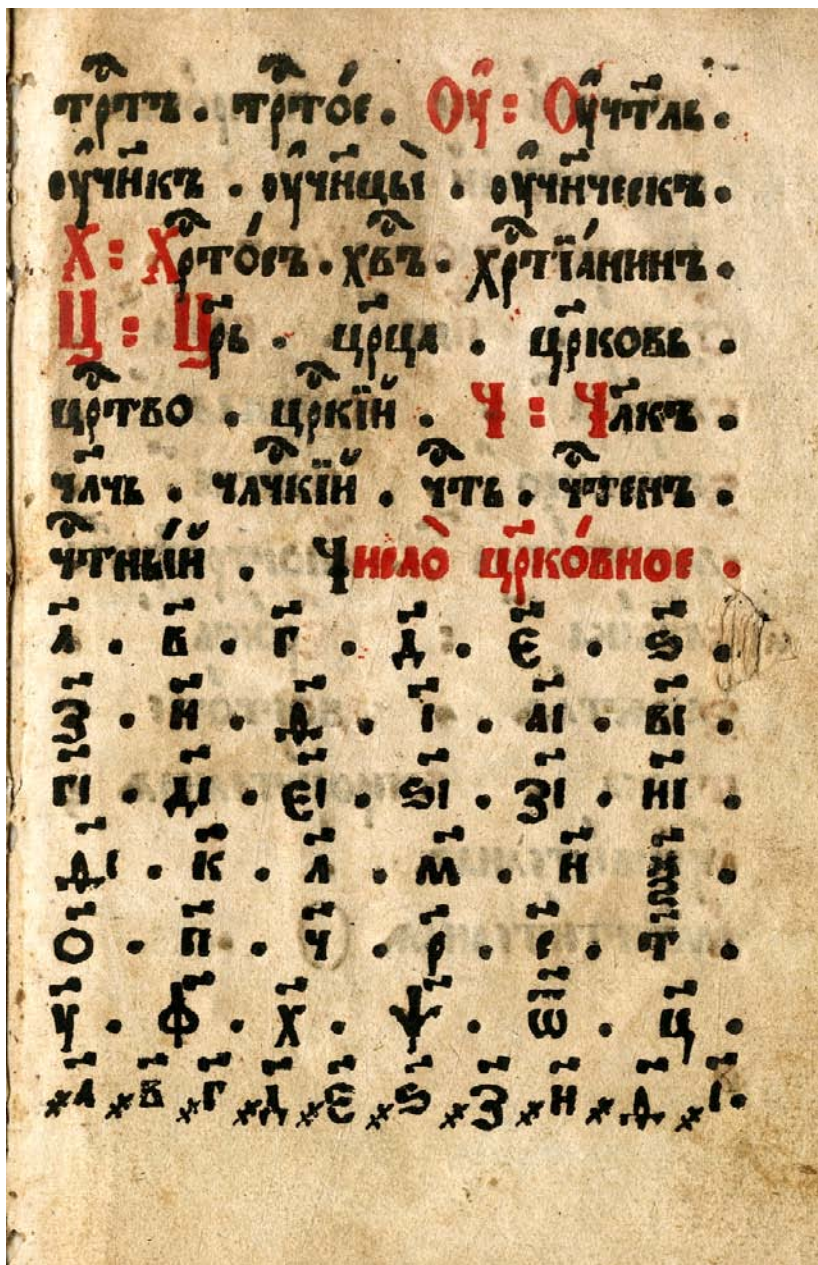 трⷭ҇тъ . трⷭ҇то́е . Оу҆ : Оу҆чт҃ль .
оу҆чн҃къ . оу҆чн҃цы̀ . оу҆чн҃ческъ .
Х : Хрⷭ҇то́съ . хⷭ҇въ . хрⷭ҇тїа́нинъ .
Ц : Цр҃ь . цр҃ца . цр҃ковь .
црⷭ҇тво . црⷭ҇кїй . Ч : Чл҃къ .
чл҃чь . члⷭ҇чкїй . чⷭ҇ть . чⷭ҇тенъ .
чⷭ҇тны́й . Число̀ цр҃ко́вное .
а҃ . в҃ . г҃ . д҃ . є҃ . ѕ҃ .
з҃ . и҃ . ѳ҃ . і҃ . а҃і . в҃і .
г҃і . д҃і . є҃і . ѕ҃і . з҃і . и҃і .
ѳ҃і . к҃ . л҃ . м҃ . н҃ . ѯ҃
о҃ . п҃ . ч҃ . р҃ . с҃ . т҃ .
у҃ . ф҃ . х҃ . ѱ҃ . ѿ҃ . ц҃ .
҂а҃ ҂в҃ ҂г҃ ҂д҃ ҂є҃ ҂ѕ҃ ҂з҃ ҂и҃ ҂ѳ҃ ҂і҃ .